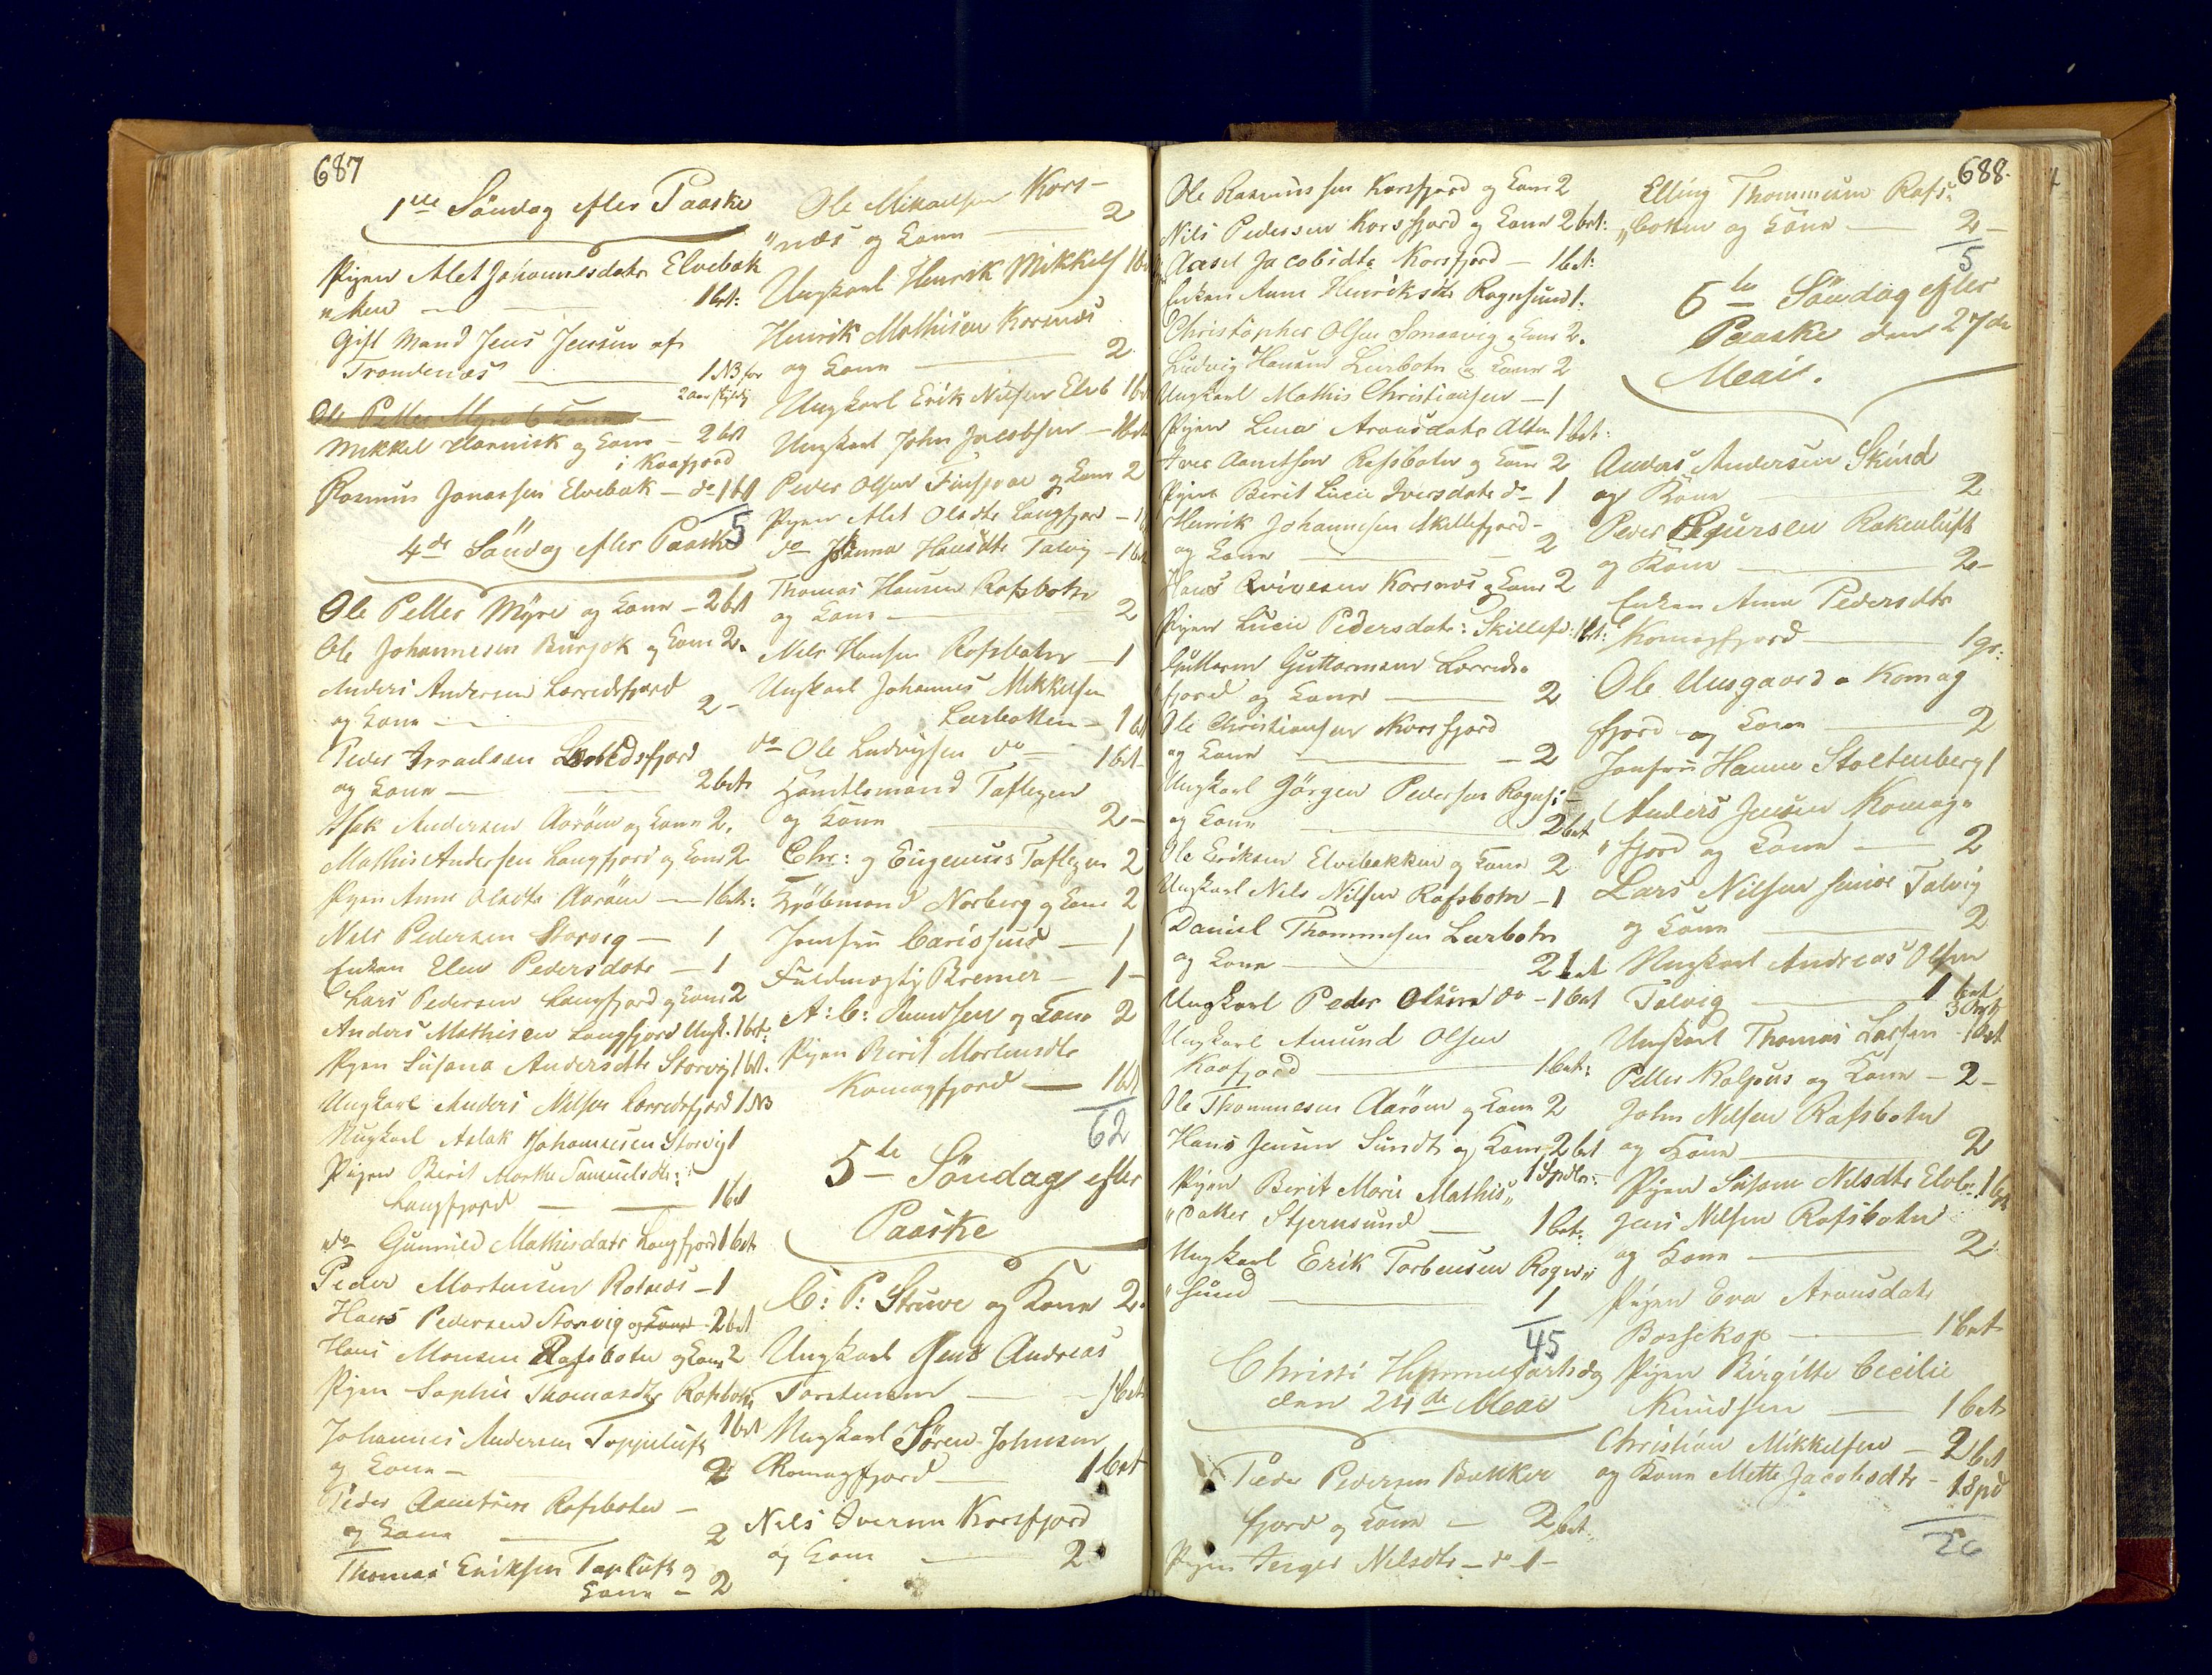 687
1ste Söndag efter Paaske
Pigen Alet Johannesdatr Elvebak
"ken — 1 bet:
Gift Mand Jens Jensen af
Trondenæs — 1 NB for
2 Aar
Ole Petter Myre & Kone
Mikkel og Kone — 2 bet
i Kaafjord
Rasmus Jonassen Elvebak — do 1 bet
5
4de Söndag efter Paaske
Ole Petter Myre og Kone — 2 bet
Ole Johannesen Burjok og Kone 2.
Anders Andersen Lerredsfjord
og Kone — 2 -
Peder Leredsfjord
og Kone — 2 bet
Isak Andersen Aaröen og Kone 2.
Mathis Andersen Langfjord og Kone 2
Pigen Anne Olsdtr Aaröen — 1 bet:
Nils Pedersen Storvig — 1
Enken Elen Pedersdatr — 1
Lars Pedersen Langfjord og Kone 2
Anders Mathisen Langfjord Ungk. 1 bet:
Pigen Susana Andersdtr Storvig 1 bet.
Ungkarl Anders Nilsen Lerredsfjord 1 NB
Ungkarl Aslak Johannesen Storvig 1
Pigen Berit Marthe Samuelsdtr:
Langfjord — 1 bet
do Gunnild Mathisdatr Langfjord 1 bet
Peder Mortensen Rotnæs — 1
Hans Pedersen Storvig og Kone 2 bet
Hans Monsen Rafsbotn og Kone 2
Pigen Sophie Thomasdtr Rafsbotn
1 bet
Johannes Andersen Toppeluft
og Kone — 2
Peder Amundsen Rafsboten —
og Kone — 2
Thomas Eriksen Topluft og
Kone — 2
Ole Mikaelsen Kors-
"næs og Kone — 2
Ungkarl Henrik Mikkels 1 bet
Henrik Mathisen Korsnæs
og Kone — 2.
Ungkarl Erik Nilsen Elveb 1 bet
Ungkarl John Jacobsen — 1 bet
Peder Olsen og Kone 2
Pigen Alet Olsdtr Langfjor — 1
do Johanna Hansdtr Talvig — 1 bet
Thomas Hansen Rafsbotn
og Kone — 2
Nils Hansen Rafsbotn — 1
Ungkarl Johannes Mikkelsen
Lerbotten — 1 bet
do Ole Ludvigsen do — 1 bet
Handelsmand Taflezen
og Kone — 2 -
Chr: og Eugenius Taflezen 2
Kjöbmand Norberg og Kone 2
Jomfru Carisius — 1
Fuldmægtig Bremer — 1 -
A: C: Knudsen og Kone 2
Pigen Berit Mortensdtr
Komagfjord — 1 bet
62
5te Söndag efter
Paaske
C: P: Struve og Kone 2.
Ungkarl Jens Andreas
Torstensen — 1 bet
Ungkarl Sören Johnsen
Komagfjord — 1 bet
Nils Iversen Korsfjord
og Kone — 2
688.
Ole Rasmussen Korsfjord og Kone 2
Nils Pedersen Korsfjord og Kone 2 bet:
Aasel Jacobsdtr Korsfjord — 1 bet:
Enken Anne Henriksdtr Rognsund 1.
Christopher Olsen Smaavig og Kone 2.
Ludvig Hansen Lerbotn og Kone 2
Ungkarl Mathis Christiansen — 1
Pigen Lena Aronsdatr Alten 1 bet:
Iver Amundsen Rafsbotn og Kone 2
Pigen Berit Lucie Iversdatr do — 1
Henrik Johannesen Skillefjord -
og Kone — 2
Hans Korsnæs og Kone 2
Pigen Lucie Pedersdatr: Skillefj: 1 bet:
Guttorm Guttormsen Lerreds-
"fjord og Kone — 2
Ole Christiansen Korsfjord
og Kone — 2
Ungkarl Jörgen Pedersen Rogns: -
og Kone — 2 bet
Ole Eriksen Elvebakken og Kone 2
Ungkarl Nils Nilsen Rafsbotn — 1
Daniel Thommesen Lerbotn
og Kone — 2 bet
Ungkarl Peder Olsen do — 1 bet
Ungkarl Amund Olsen
Kaafjord — 1 bet:
Ole Thommesen Aaröen og Kone 2
Hans Jensen Sundt og Kone 2 bet
1 Spdlr.
Pigen Berit Marie Mathis"
"datter Stjernsund — 1 bet:
Ungkarl Erik Torbensen Rogn"
"sund — 1
45
Christi Himmelfartsdag
den 24de Maii
Peder Pedersen Bekker
fjord og Kone — 2 bet.
Pigen Inger Nilsdtr — do 1 —
Elling Thommesen Rafs:
"botten og Kone — 2 —
5
6te Söndag efter
Paaske den 27de
Maii.
Anders Andersen Skind
og Kone — 2
Peder Sjursen Rakenluft
og Kone — 2 -
Enken Anne Pedersdtr
Komagfjord — 1 gr:
Ole Uusgaard - Komag
fjord og Kone — 2
Jomfru Hanne Stoltenberg 1
Anders Jensen Komag"
"fjord og Kone — 2
Lars Nilsen senior Talvig
og Kone — 2
Ungkarl Andreas Olsen
Talvig — 1 bet
Ungkarl Thomas Larsen — 1 bet
Petter Kolpus og Kone — 2 -
John Nilsen Rafsbotn
og Kone — 2
Pigen Susane Nilsdtr Elveb. 1 bet
Jens Nilsen Rafsbotn
og Kone — 2
Pigen Eva Aronsdatr
Bossekop — 1 bet
Pigen Birgitte Cecilie
Knudsen — 1 bet
Christian Mikkelsen — 2 bet
og Kone Mette Jacobsdtr — 1 Spd
26